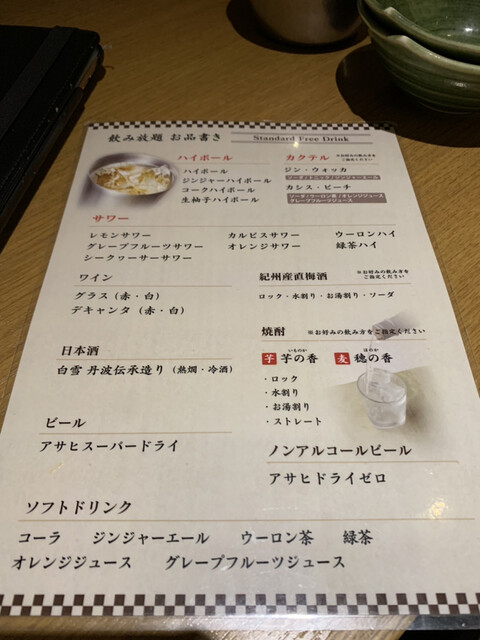 飲み放題 お品書き Standard Free Drink
ハイボール
ハイボール
ジンジャーハイボール
コークハイボール
生柚子ハイボール
カクテル ※お好みの飲み方を
ご指定ください
ジン・ウォッカ
ソーダ/トニック/ジンジャーエール
カシス・ピーチ
ソーダ/ウーロン茶/オレンジジュース
グレープフルーツジュース
サワー
レモンサワー カルピスサワー ウーロンハイ
グレープフルーツサワー オレンジサワー 緑茶ハイ
シークヮーサーサワー
ワイン
グラス(赤・白)
デキャンタ(赤・白)
紀州産直梅酒 ※お好みの飲み方を
ご指定ください
ロック・水割り・お湯割り・ソーダ
日本酒
白雪 丹波伝承造り(熱燗・冷酒)
焼酎 ※お好みの飲み方をご指定ください
芋 芋の香 麦 穂の香
いものか ほのか
・ロック
・水割り
・お湯割り
・ストレート
ビール
アサヒスーパードライ
ノンアルコールビール
アサヒドライゼロ
ソフトドリンク
コーラ ジンジャーエール ウーロン茶 緑茶
オレンジジュース グレープフルーツジュース